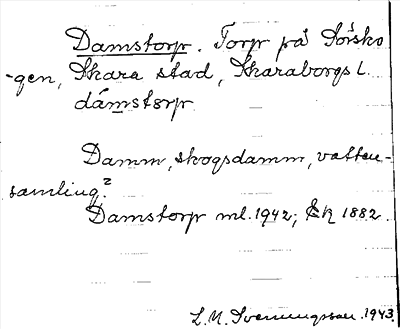 Damstorp. Torp på Sörsko
-gen, Skara stad, Skaraborgs l.
dámstørp
Damm, skogsdamm, vatten-
samling?
Damstorp ml. 1942; Ek 1882.
L. M. Svenungsson. 1943.